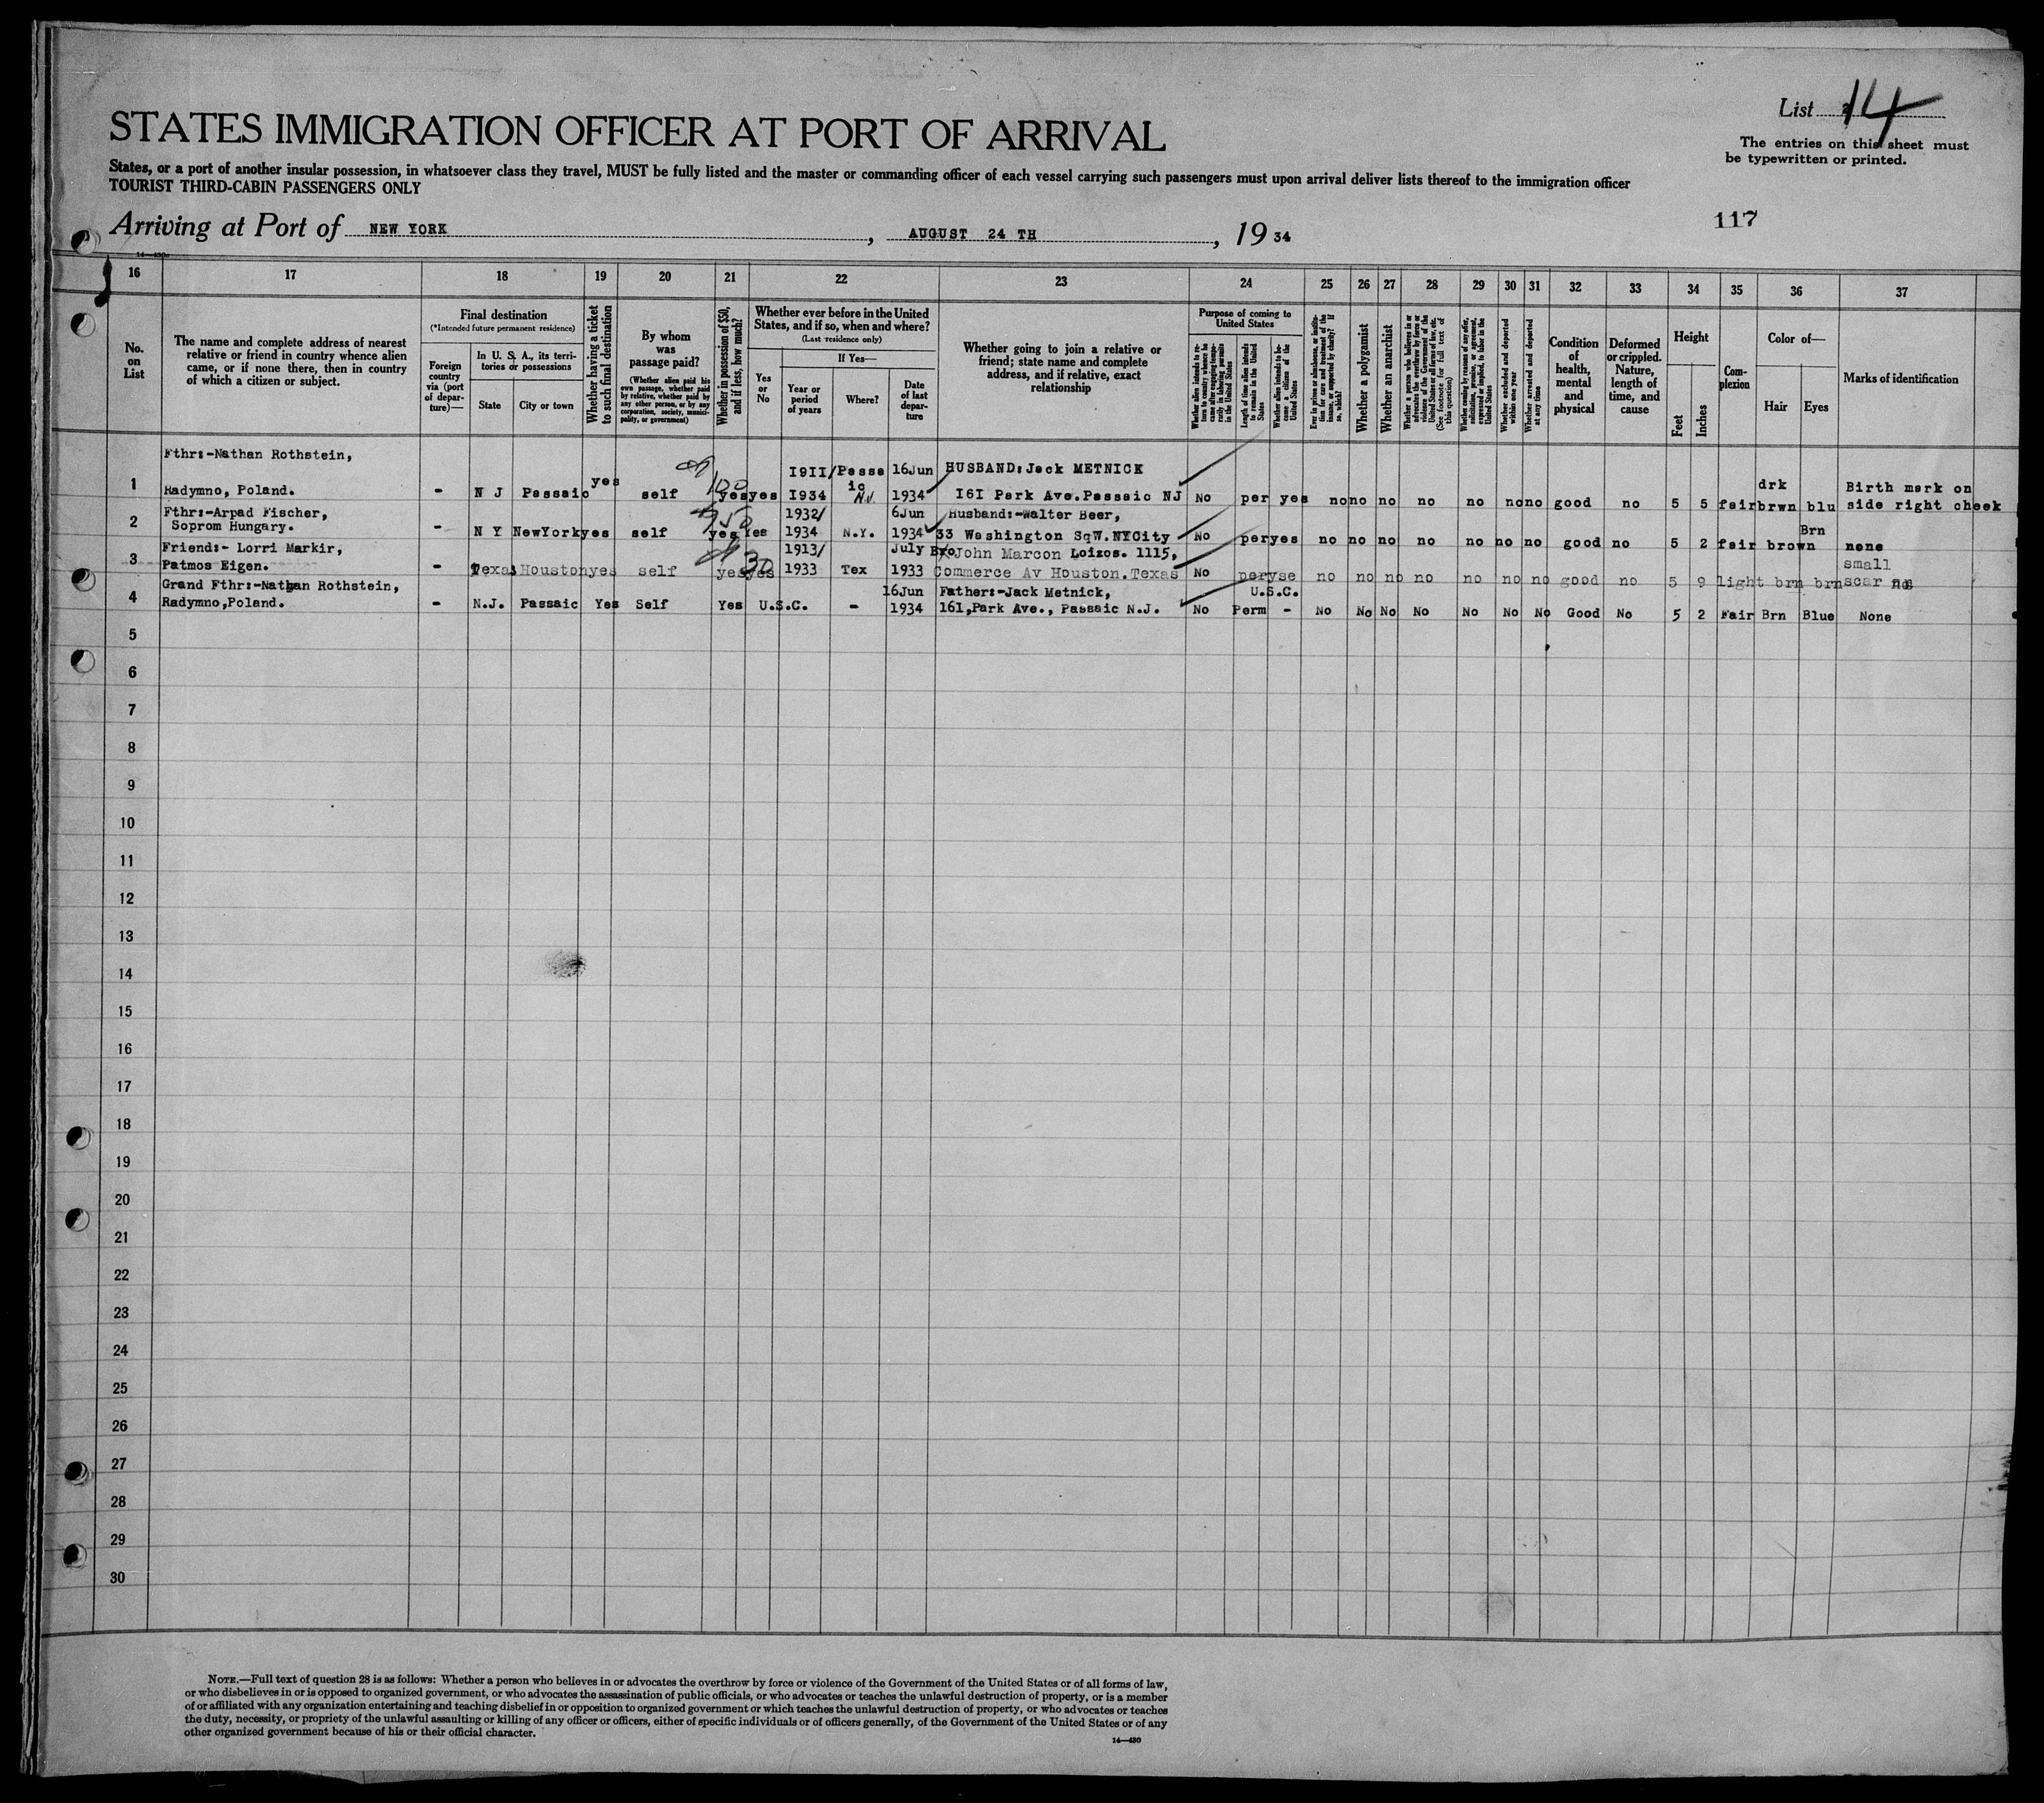 List 14
The entries on this sheet must
be typewritten or printed.
STATES IMMIGRATION OFFICER AT PORT OF ARRIVAL
States, or a port of another insular possession, in whatsoever class they travel, MUST be fully listed and the master or commanding officer of each vessel carrying such passengers must upon arrival deliver lists thereof to the immigration officer
TOURIST THIRD-CABIN PASSENGERS ONLY
117
Arriving at Port of NEW YORK, AUGUST 24 TH, 19 34
16 17 18 19 20 21 22 23 24 25 26 27 28 29 30 31 32 33 34 35 36 37
No. on List
The name and complete address of nearest relative or friend in country whence alien came, or if none there, then in country of which a citizen or subject.
Final destination
(*Intended future permanent residence)
Foreign country via (port of departure)—
In U. S. A., its territories or possessions
State
City or town
Whether having a ticket to such final destination
By whom was passage paid?
(Whether alien paid his own passage, whether paid by relative, whether paid by any other person, or by any corporation, society, municipality, or government)
Whether in possession of $50, and if less, how much?
Whether ever before in the United States, and if so, when and where?
(Last residence only)
Yes or No
If Yes—
Year or period of years
Where?
Date of last departure
Whether going to join a relative or friend; state name and complete address, and if relative, exact relationship
Purpose of coming to United States
Whether alien intends to return to country whence he came after engaging temporarily in laboring pursuits in the United States
Length of time alien intends to remain in the United States
Whether alien intends to become a citizen of the United States
Ever in prison or almshouse, or institution for care and treatment of the insane, or supported by charity? If so, which?
Whether a polygamist
Whether an anarchist
Whether a person who believes in or advocates the overthrow by force or violence of the Government of the United States or all forms of law, etc. (See footnote for full text of this question)
Whether coming by reasons of any offer, solicitation, promise, or agreement, expressed or implied, to labor in the United States
Whether excluded and deported within one year
Whether arrested and deported at any time
Condition of health, mental and physical
Deformed or crippled. Nature, length of time, and cause
Height
Feet
Inches
Complexion
Color of—
Hair
Eyes
Marks of identification
Fthr:-Nathan Rothstein,
1 Radymno, Poland. - N J Passaic yes self $100 yes yes 1911/1934 Passaic N.J. 16Jun 1934 HUSBAND:Jack METNICK
161 Park Ave.Passaic NJ No per yes no no no no no no no good no 5 5 fair drk brwn blu Birth mark on side right cheek
Fthr:-Arpad Fischer,
2 Soprom Hungary. - N Y NewYork yes self $50 yes Yes 1932/1934 N.Y. 6Jun 1934 Husband:-Walter Beer,
33 Washington SqW.NYCity No per yes no no no no no no no good no 5 2 fair brown Brn none
Friend:- Lorri Markir,
3 Patmos Eigen. - Texas Houston yes self $30 yes yes 1913/1933 Tex July 1933 Bro John Marcon Loizos. 1115,
Commerce Av Houston.Texas No per yse no no no no no no no good no 5 9 light brn brn small scar
Grand Fthr:-Nathan Rothstein,
4 Radymno,Poland. - N.J. Passaic Yes Self Yes U.S.C. - 16Jun 1934 Father:-Jack Metnick,
161,Park Ave., Passaic N.J. No Perm U.S.C. - No No No No No No No Good No 5 2 Fair Brn Blue None
5
6
7
8
9
10
11
12
13
14
15
16
17
18
19
20
21
22
23
24
25
26
27
28
29
30
NOTE.—Full text of question 28 is as follows: Whether a person who believes in or advocates the overthrow by force or violence of the Government of the United States or of all forms of law,
or who disbelieves in or is opposed to organized government, or who advocates the assassination of public officials, or who advocates or teaches the unlawful destruction of property, or is a member
of or affiliated with any organization entertaining and teaching disbelief in or opposition to organized government or which teaches the unlawful destruction of property, or who advocates or teaches
the duty, necessity, or propriety of the unlawful assaulting or killing of any officer or officers, either of specific individuals or of officers generally, of the Government of the United States or of any
other organized government because of his or their official character.
14—430